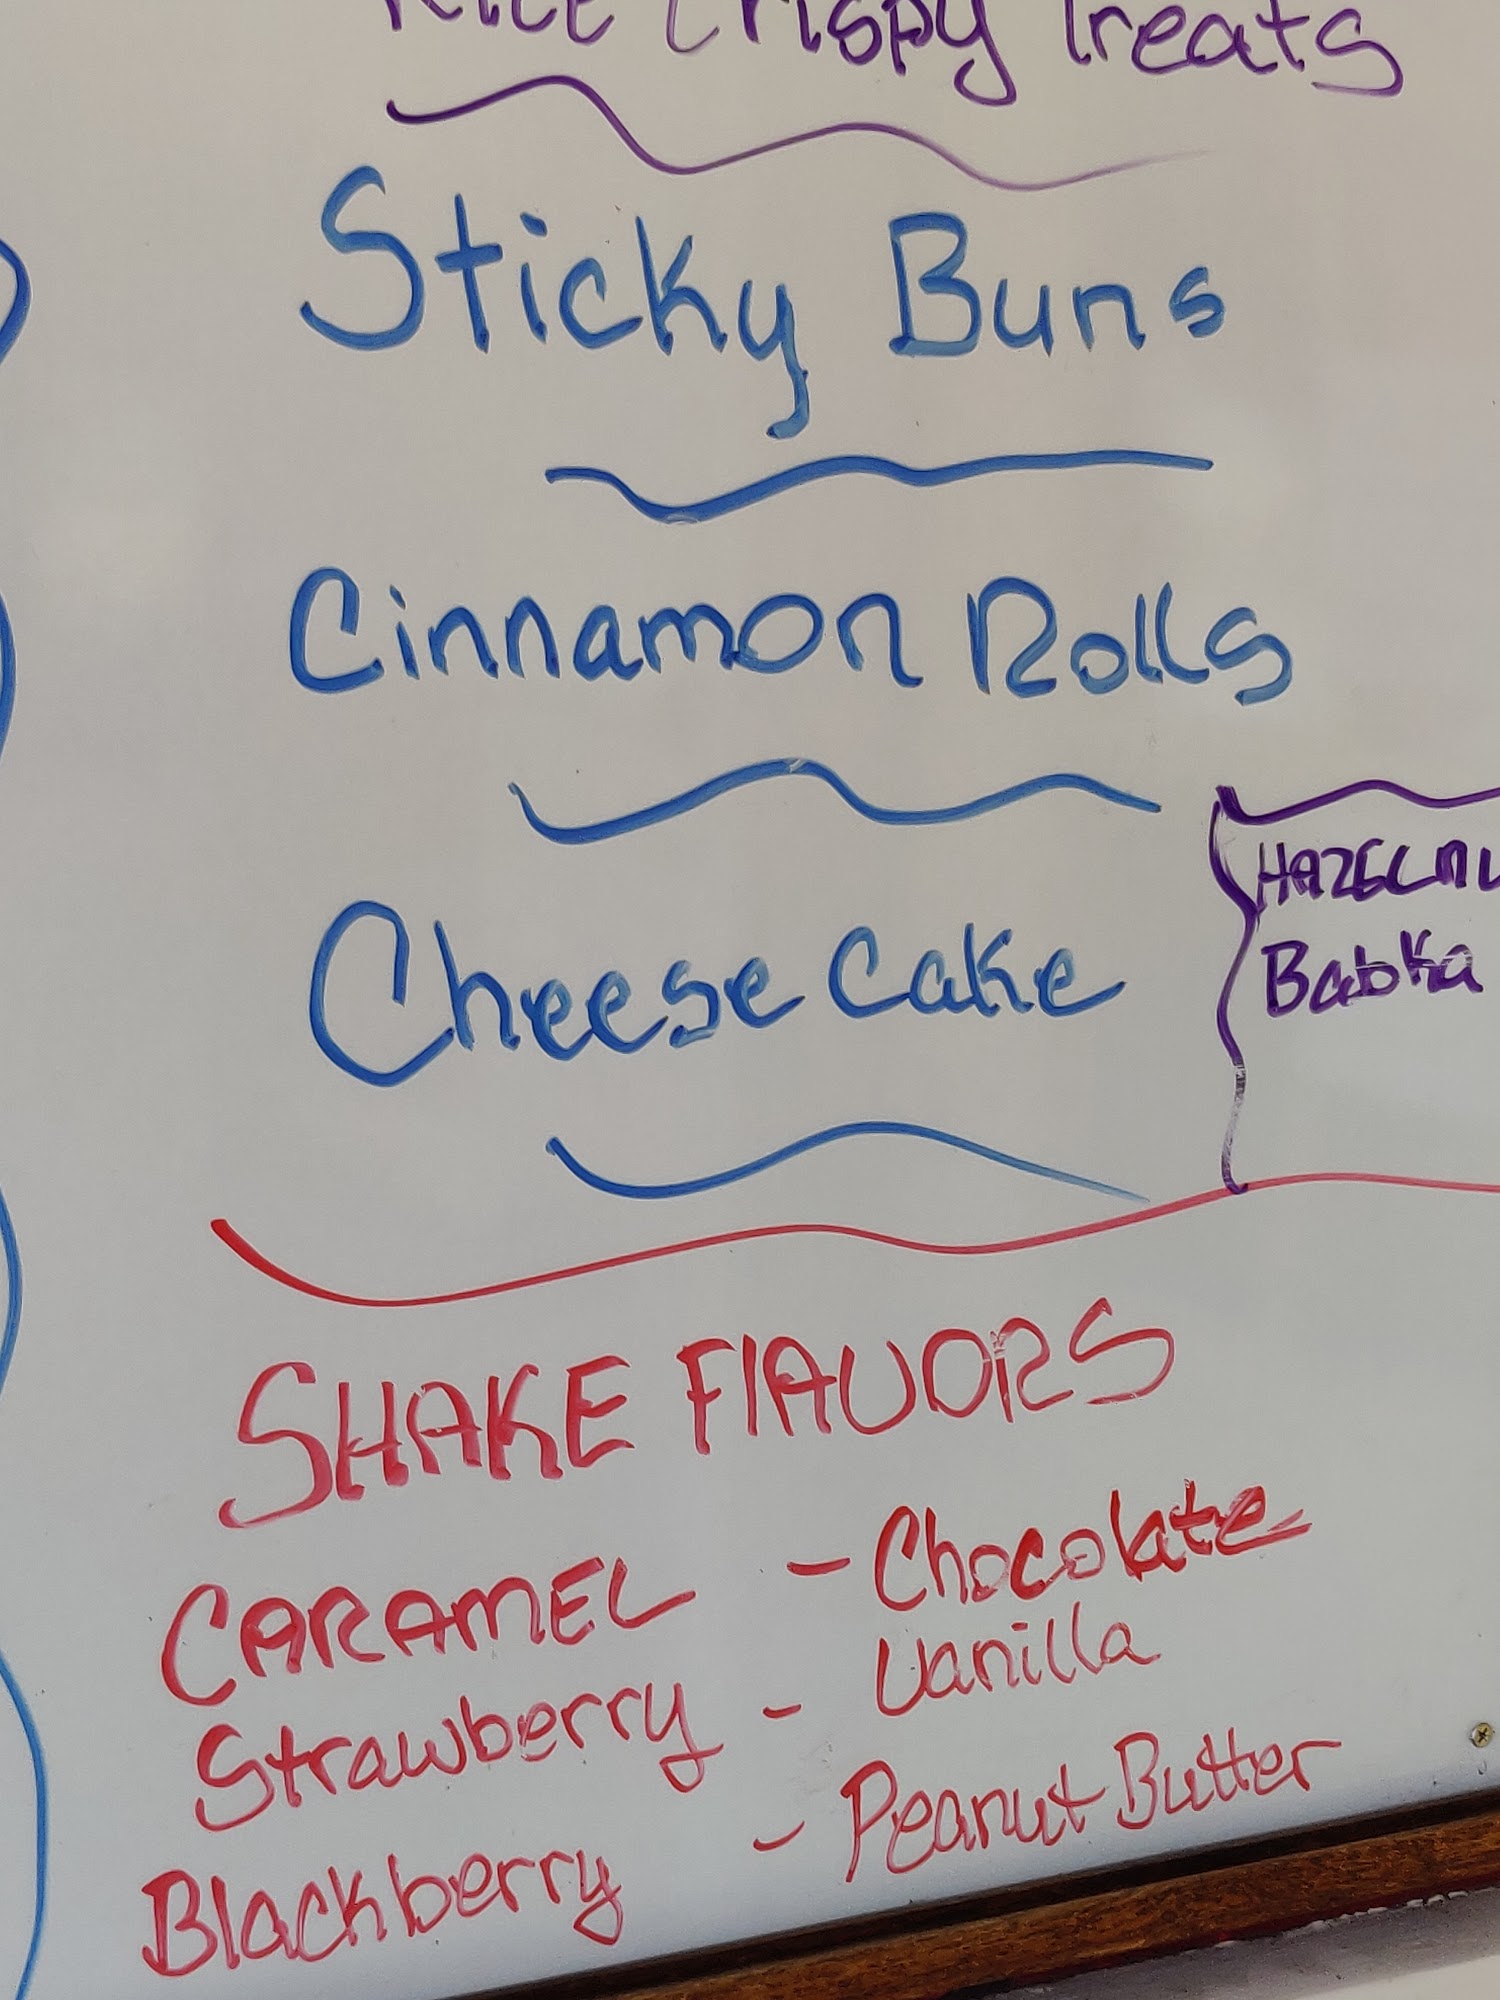 Rice Crispy Treats
Sticky Buns
Cinnamon Rolls
Cheese Cake
Babka
SHAKE FlAVORS
CARAMEL - Chocolate
Strawberry - Vanilla
Blackberry - Peanut Butter